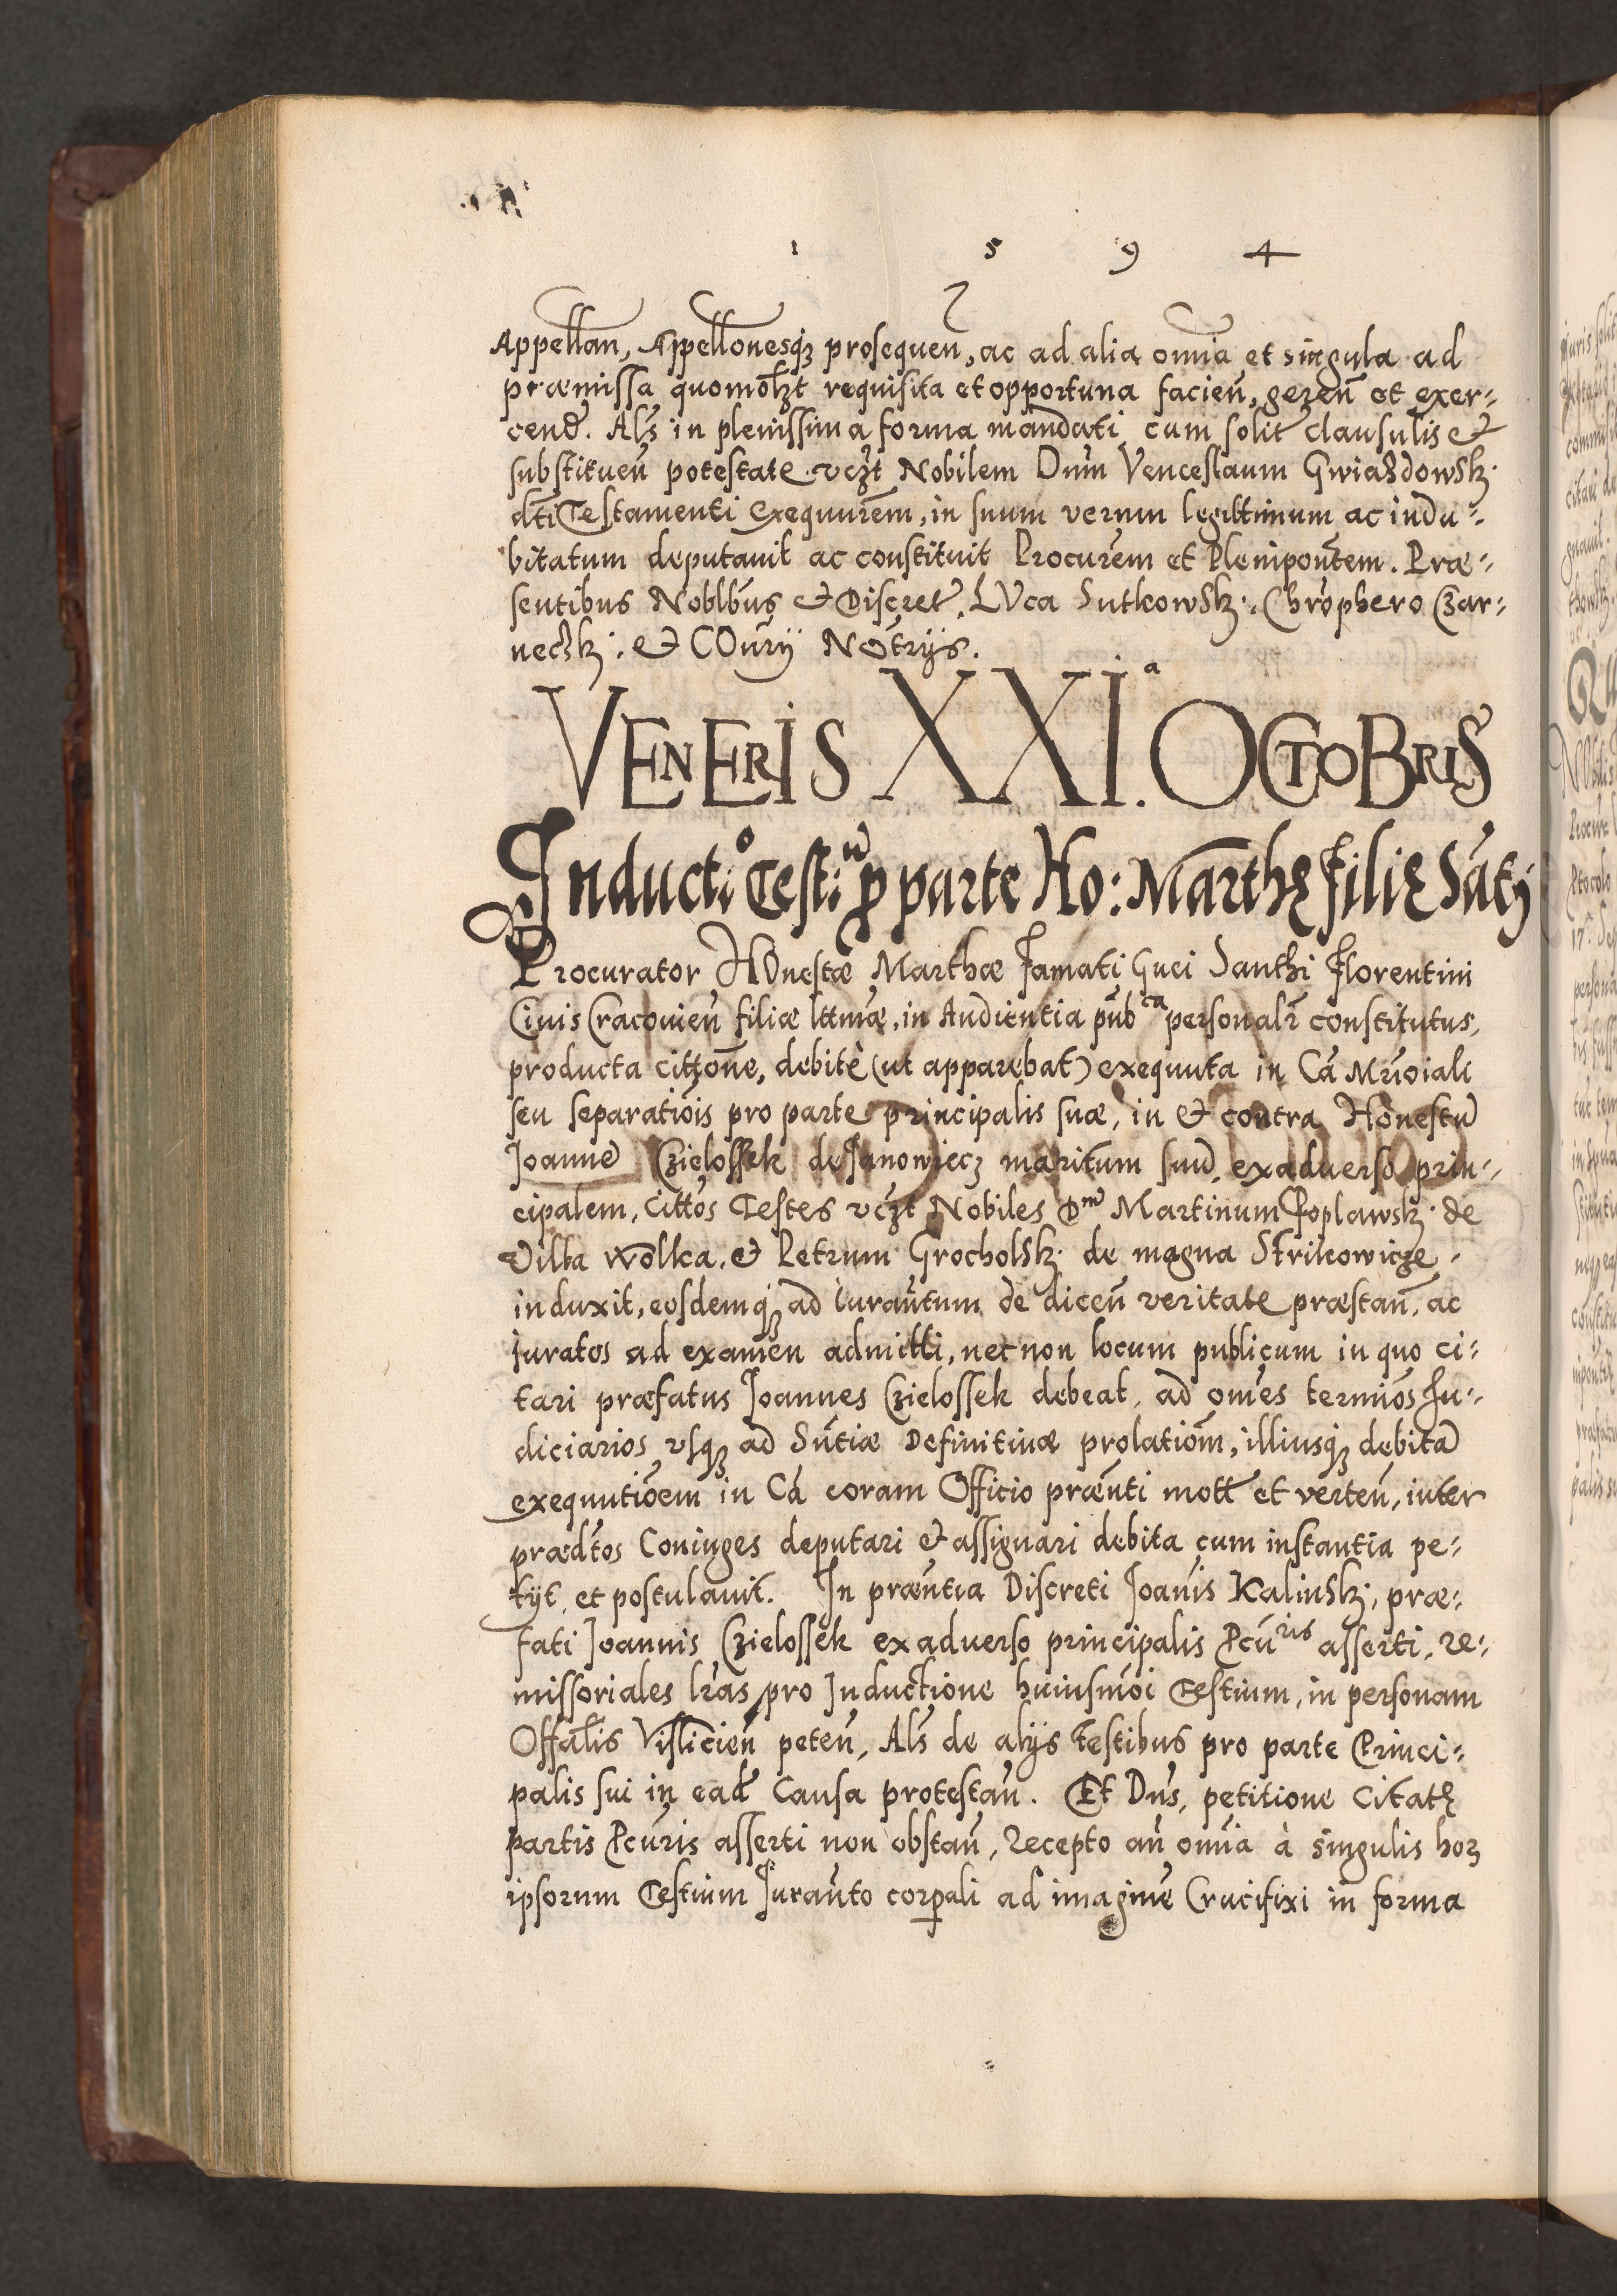 1 5 9 4
Appellan̄, Appellonesq₃ prosequen̄, ac ad alia omīa et singula ad
præmissa quomołżt requisita et opportuna facien̄, geren̄ et exer⸗
cend̄. Al̄s in plenissima forma mandati cum solit̄ clausulis et
substituen̄ potestate vcżt Nobilem Dn̄m Venceslaum Gwiazdowsk.
dt̄i Testamenti Exequur̄em, in suum verum legittimum ac indu⸗
bitatum deputavit ac constituit Procur̄em et Plenipon̄tem. Præ⸗
sentibus Noblb̄us et Discret̄. LVca Sutkowsk., Chr̄ophero Czar⸗
neczk. et COūrij NOt̄rijs.
VENERIS XXI.ª OCTOBRIS
Inductº Testiū ꝓ parte Ho: Marthę filię Sātij
Procurator HOnestæ Marthæ Famati Guci Santhi Florentini
Civis Cracovien̄ filiæ lttmæ, in Audientia pūbᶜᵃ personalr̄ constitutus,
producta citt̄one, debitè (ut apparebat) exequuta in Cā Mr̄ioiali
seu separatiōis pro parte principalis suæ, in et contra Honestū
Joannē Czielossek de Janowiecz maritum suū, exadverso prin⸗
cipalem, Citt̄os Testes vcżt Nobiles Dⁿᵐ Martinum Poplawsk. de
Villa Wolka. et Petrum Grocholsk. de magna Strikowicze
induxit, eosdemq₃ ad Iuran̄tum de dicen̄ veritate præstan̄, ac
Iuratos ad examen admitti, necnon locum publicum in quo ci⸗
tari præfatus Joannes Czielossek debeat, ad om̄es termīos Ju⸗
diciarios vsq₃ ad Sn̄tiæ Definitivæ prolatiōm, illiusq₃ debitā
exequutiōem in Cā coram Officio præn̄ti mott̄ et verten̄, inter
prædt̄os Coniuges deputari et assignari debita cum instantia pe⸗
tijt et postulavit. In præn̄tia Discreti Joan̄is Kalinsk., præ⸗
fati Joannis Czielossek exadverso principalis Pcūʳⁱˢ asserti, re⸗
missoriales lr̄as pro Inductione huiusmōi Testium, in personam
Offālis Vislicien̄ peten̄, Al̄s de alijs testibus pro parte Princi⸗
palis sui in ead̄ Causa protestan̄. Et Dn̄s, petitione Citatę
partis Pcūris asserti non obstan̄, Recepto an̄ omīa à singulis hor₃
ipsorum Testium Iuran̄to corꝑali ad imaginē Crucifixi in forma